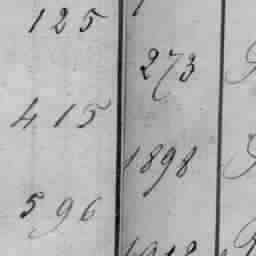 125
273
415
1898
596